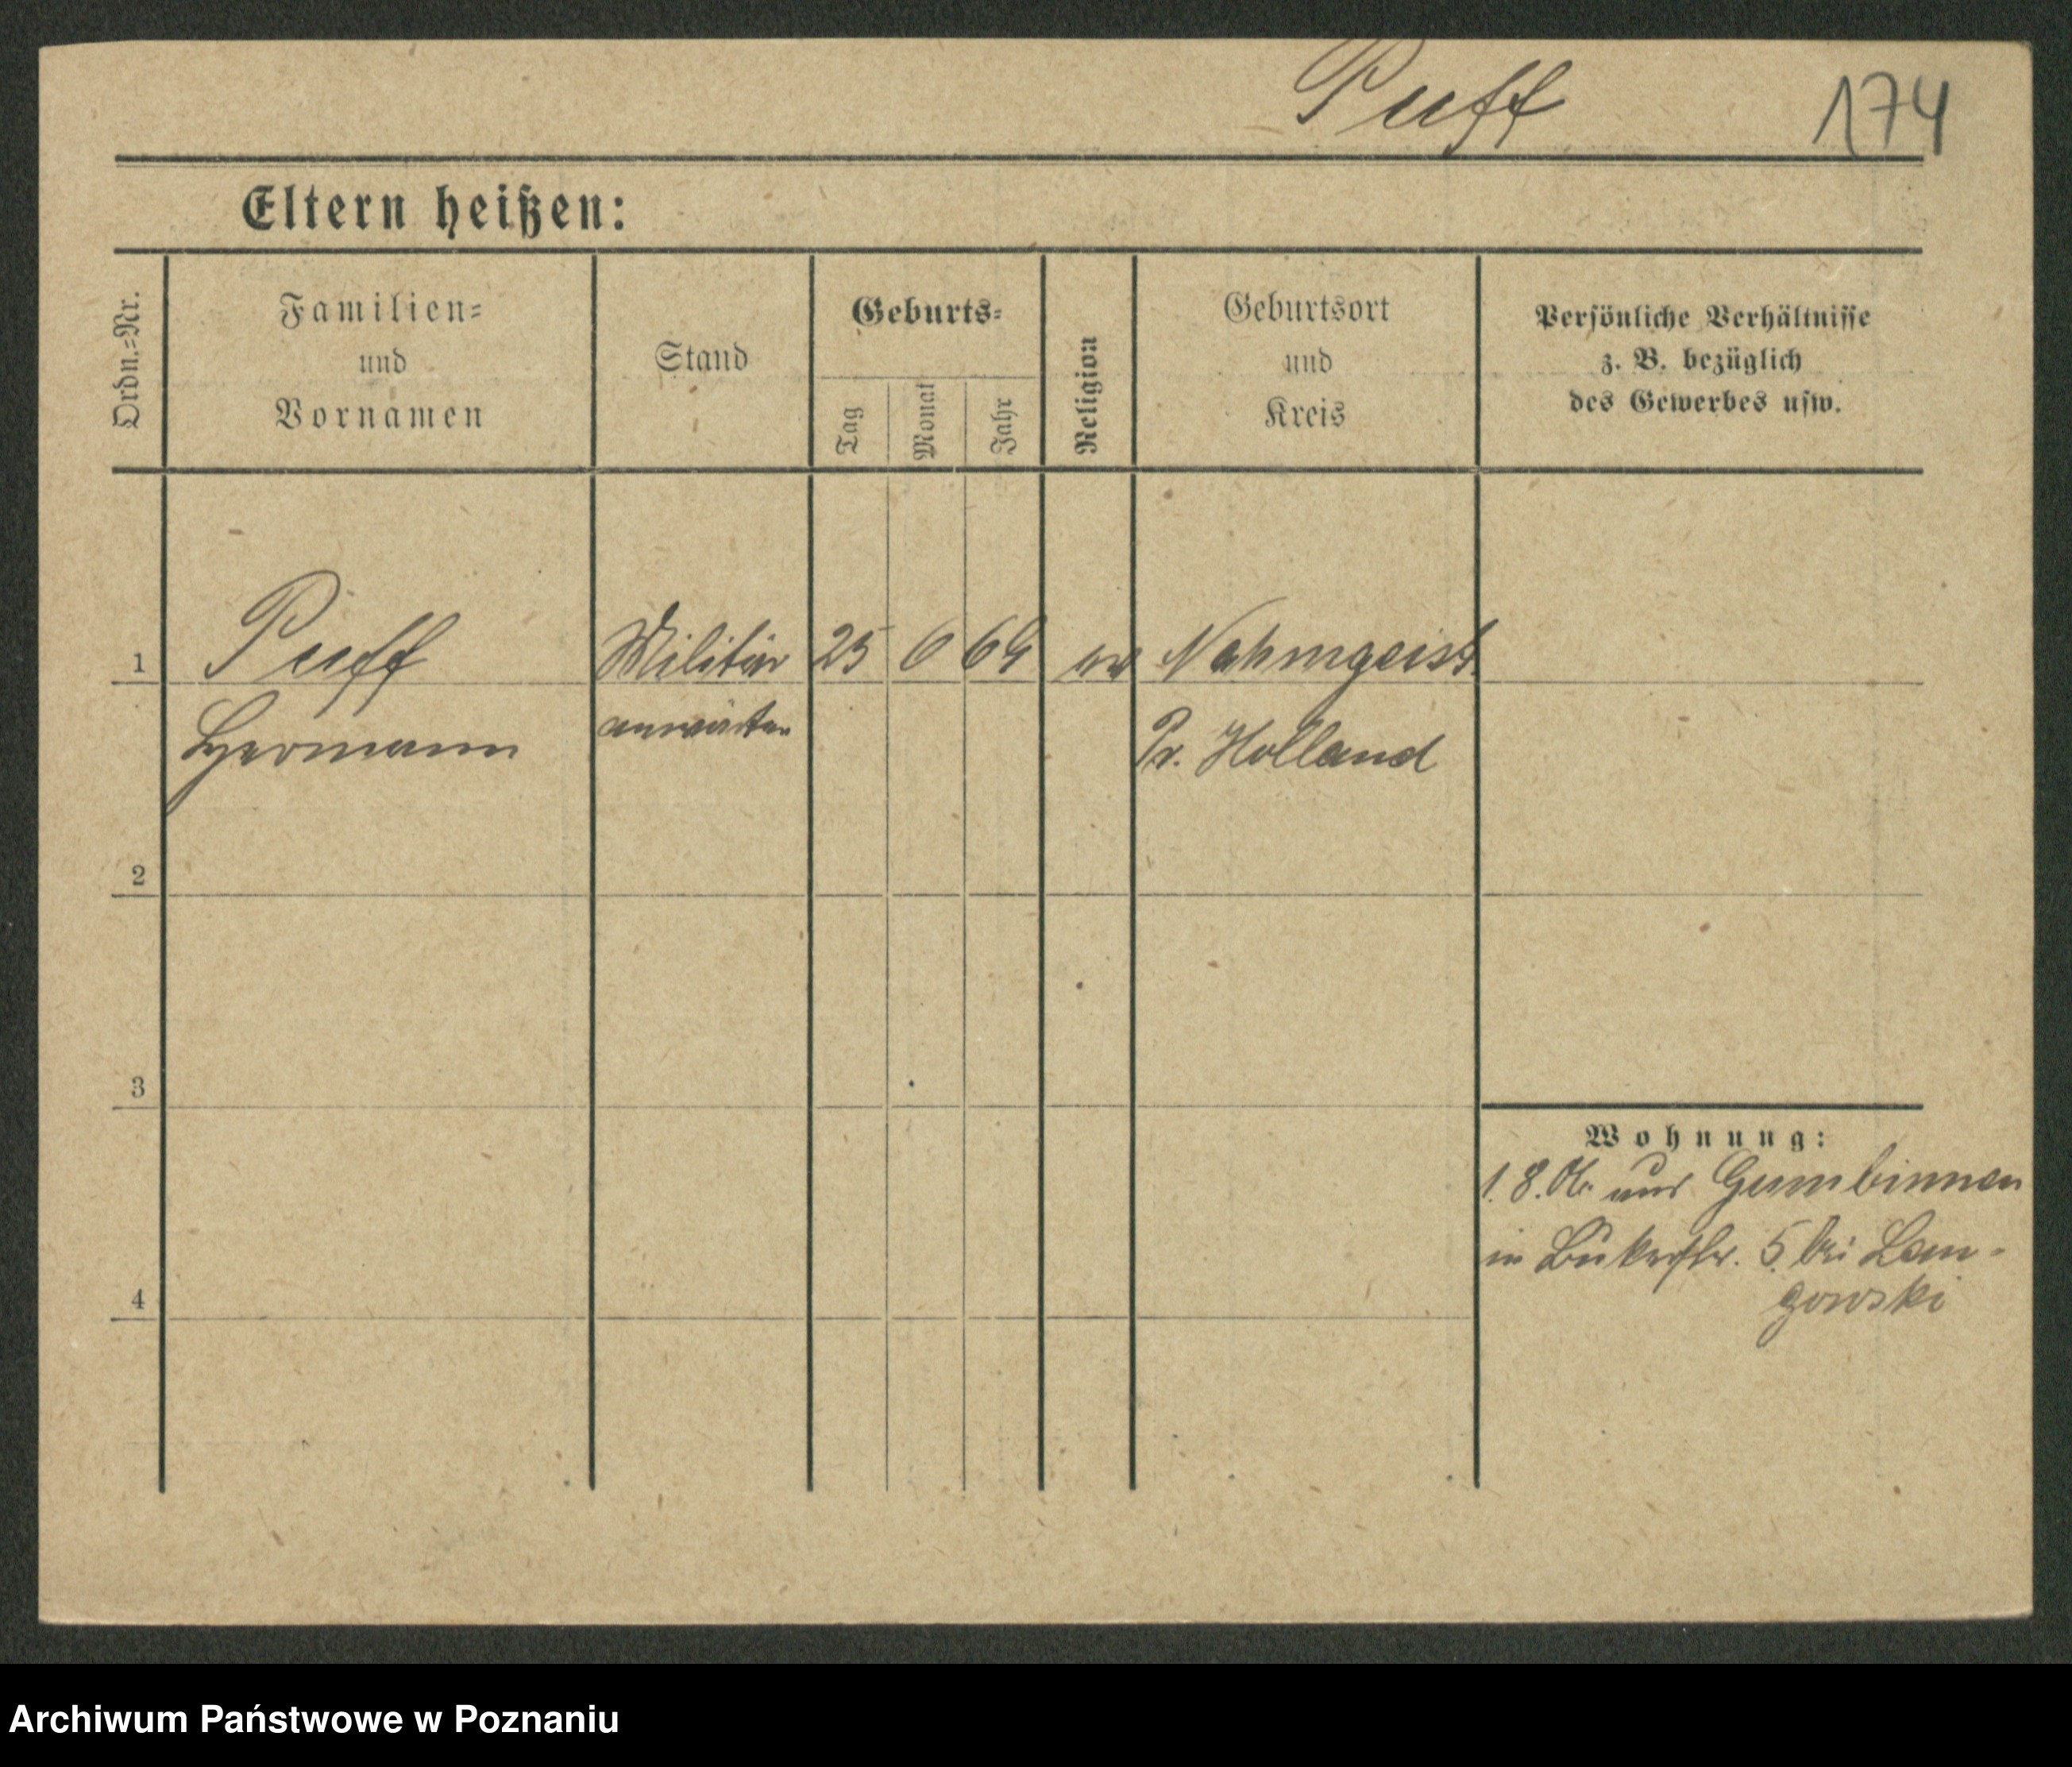 Puff 174
Eltern heißen:
Ordn.=Nr.
Familien=
und
Vornamen
Stand
Geburts=
Tag
Monat
Jahr
Religion
Geburtsort
und
Kreis
Persönliche Verhältnisse
z. B. bezüglich
des Gewerbes usw.
1 Puff Militär 25 6 69 ev Nahmgeist
Hermann anwärter Pr. Holland
2
3
Wohnung:
1.8.06. aus Gumbinnen
in Bükerstr. 5. bei Lan-
gowski
4
Archiwum Państwowe w Poznaniu